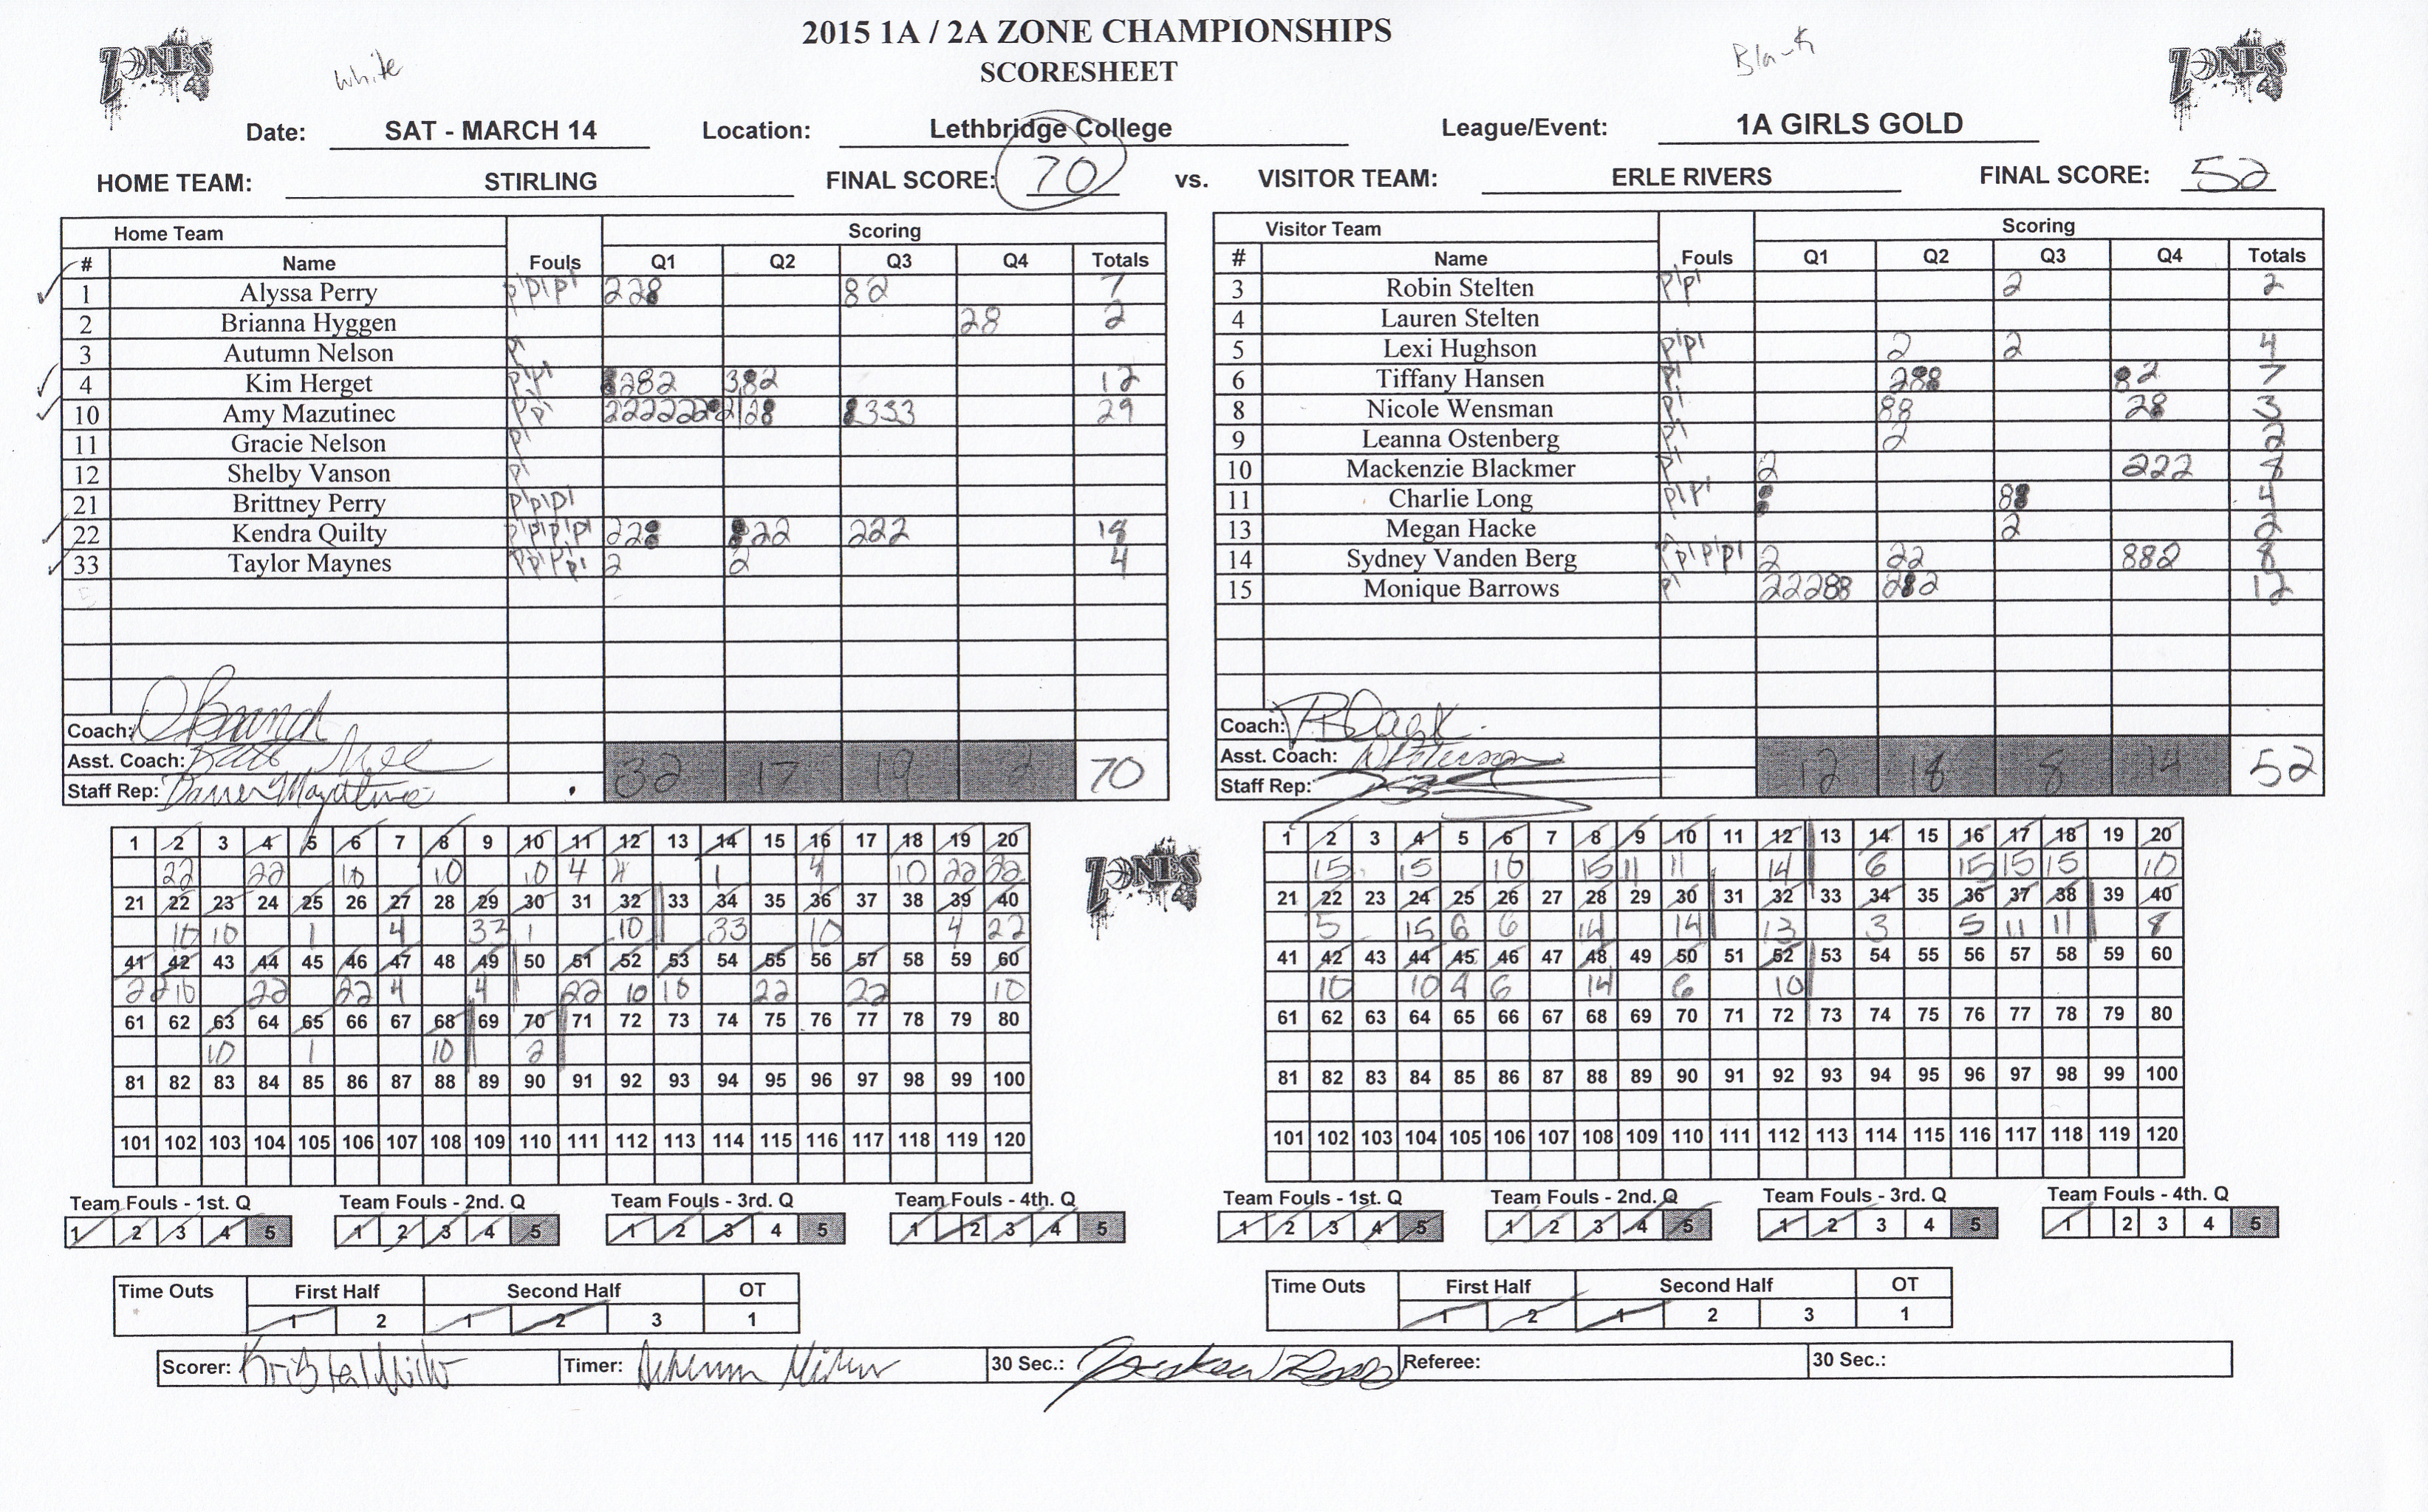 2015 1A / 2A ZONE CHAMPIONSHIPS
SCORESHEET
ZONES
White
Black
ZONES
Date: SAT - MARCH 14 Location: Lethbridge College League/Event: 1A GIRLS GOLD
HOME TEAM: STIRLING FINAL SCORE: 70 vs. VISITOR TEAM: ERLE RIVERS FINAL SCORE: 52
Home Team Scoring
# Name Fouls Q1 Q2 Q3 Q4 Totals
1 Alyssa Perry 7
2 Brianna Hyggen 2
3 Autumn Nelson
4 Kim Herget 12
10 Amy Mazutinec 29
11 Gracie Nelson
12 Shelby Vanson
21 Brittney Perry
22 Kendra Quilty 222
33 Taylor Maynes 2 2 4
Coach:
Asst. Coach:
Staff Rep: Darren Mazutinec
32 17 19 2 70
Visitor Team Scoring
# Name Fouls Q1 Q2 Q3 Q4 Totals
3 Robin Stelten 2 2
4 Lauren Stelten
5 Lexi Hughson 2 2 4
6 Tiffany Hansen 7
8 Nicole Wensman 3
9 Leanna Ostenberg 2 2
10 Mackenzie Blackmer 2 222 8
11 Charlie Long 4
13 Megan Hacke 2 2
14 Sydney Vanden Berg 2 22 8
15 Monique Barrows 12
Coach:
Asst. Coach:
Staff Rep:
12 18 8 14 52
1 2 3 4 5 6 7 8 9 10 11 12 13 14 15 16 17 18 19 20
22 22 10 10 10 4 4 1 4 10 22 22
21 22 23 24 25 26 27 28 29 30 31 32 33 34 35 36 37 38 39 40
10 10 1 4 33 1 10 33 10 4 22
41 42 43 44 45 46 47 48 49 50 51 52 53 54 55 56 57 58 59 60
22 10 22 22 4 4 22 10 10 22 22 10
61 62 63 64 65 66 67 68 69 70 71 72 73 74 75 76 77 78 79 80
10 1 10 2
81 82 83 84 85 86 87 88 89 90 91 92 93 94 95 96 97 98 99 100
101 102 103 104 105 106 107 108 109 110 111 112 113 114 115 116 117 118 119 120
ZONES
1 2 3 4 5 6 7 8 9 10 11 12 13 14 15 16 17 18 19 20
15 15 10 15 11 11 14 6 15 15 15 10
21 22 23 24 25 26 27 28 29 30 31 32 33 34 35 36 37 38 39 40
5 15 6 6 14 14 13 3 5 11 11 8
41 42 43 44 45 46 47 48 49 50 51 52 53 54 55 56 57 58 59 60
10 10 6 14 6 10
61 62 63 64 65 66 67 68 69 70 71 72 73 74 75 76 77 78 79 80
81 82 83 84 85 86 87 88 89 90 91 92 93 94 95 96 97 98 99 100
101 102 103 104 105 106 107 108 109 110 111 112 113 114 115 116 117 118 119 120
Team Fouls - 1st. Q Team Fouls - 2nd. Q Team Fouls - 3rd. Q Team Fouls - 4th. Q
1 2 3 4 5 1 2 3 4 5 1 2 3 4 5 1 2 3 4 5
Team Fouls - 1st. Q Team Fouls - 2nd. Q Team Fouls - 3rd. Q Team Fouls - 4th. Q
1 2 3 4 5 1 2 3 4 5 1 2 3 4 5 1 2 3 4 5
Time Outs First Half Second Half OT
1 2 1 2 3 1
Time Outs First Half Second Half OT
1 2 1 2 3 1
Scorer: Timer: 30 Sec.: Referee: 30 Sec.: